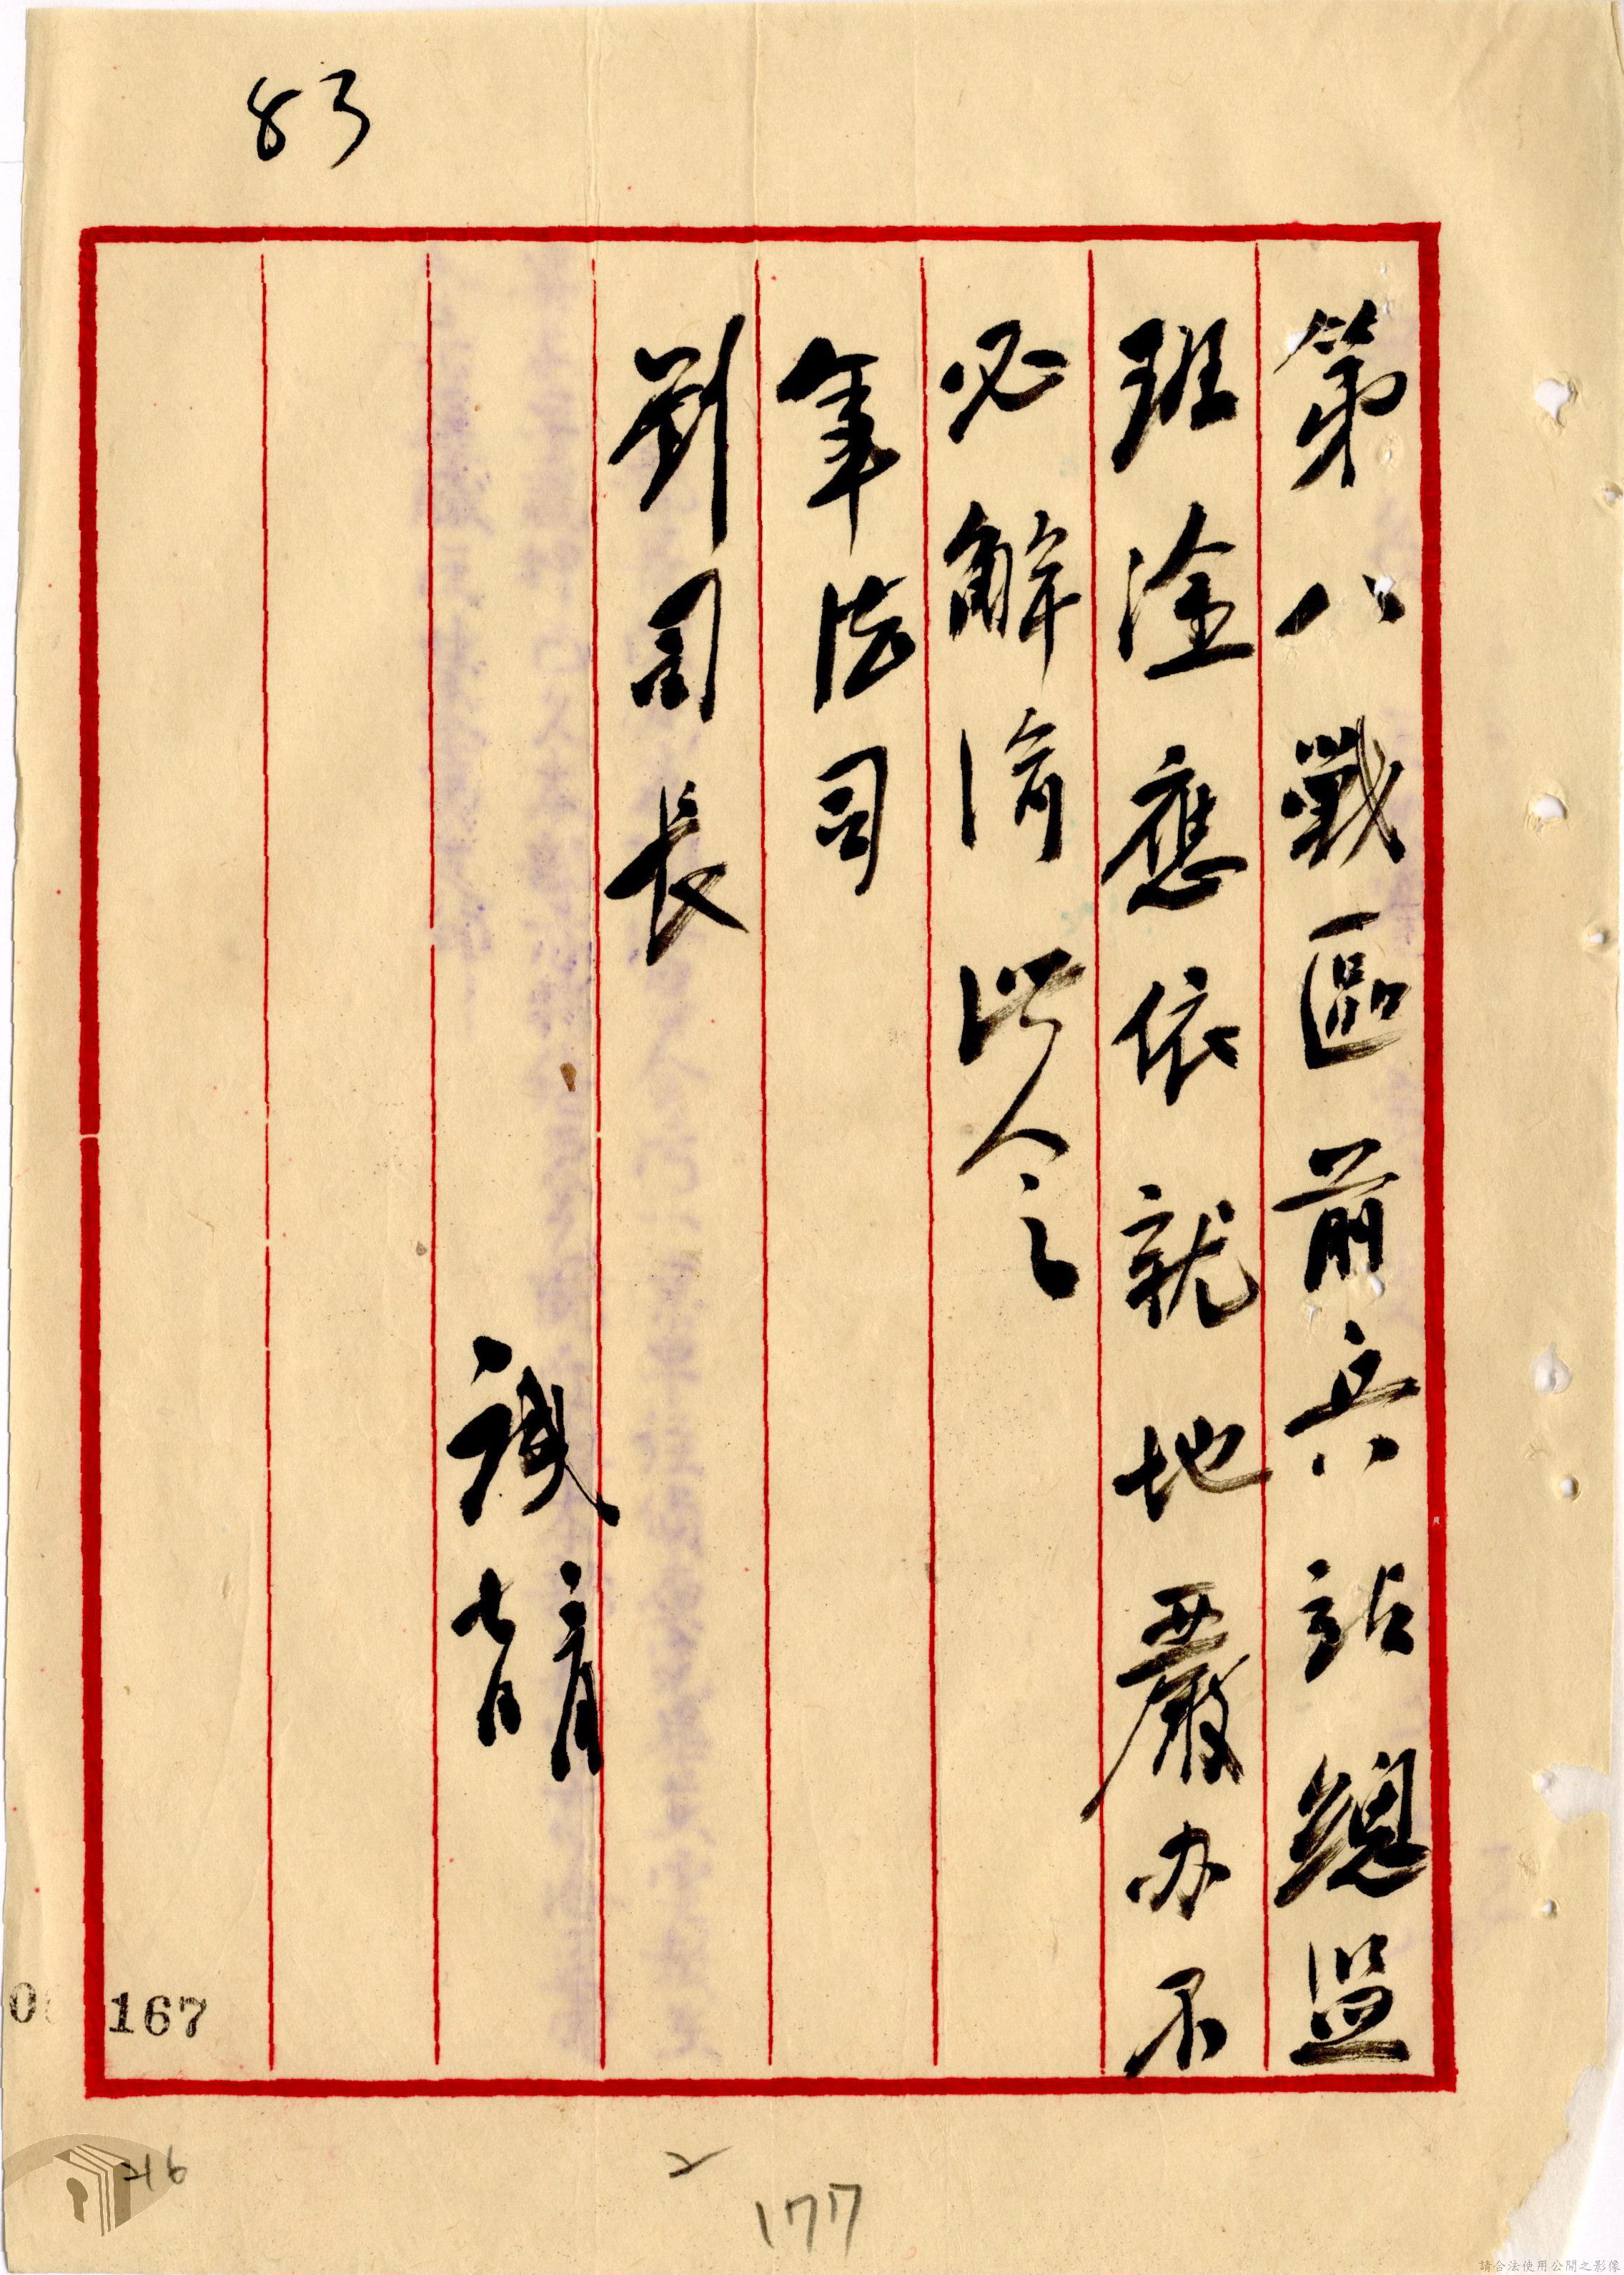 83
第八戰區前兵站總監
班淦應依就地嚴办不
必解渝 此令
軍法司
劉司長
誠
167
216
2
177
請合法使用公開之影像